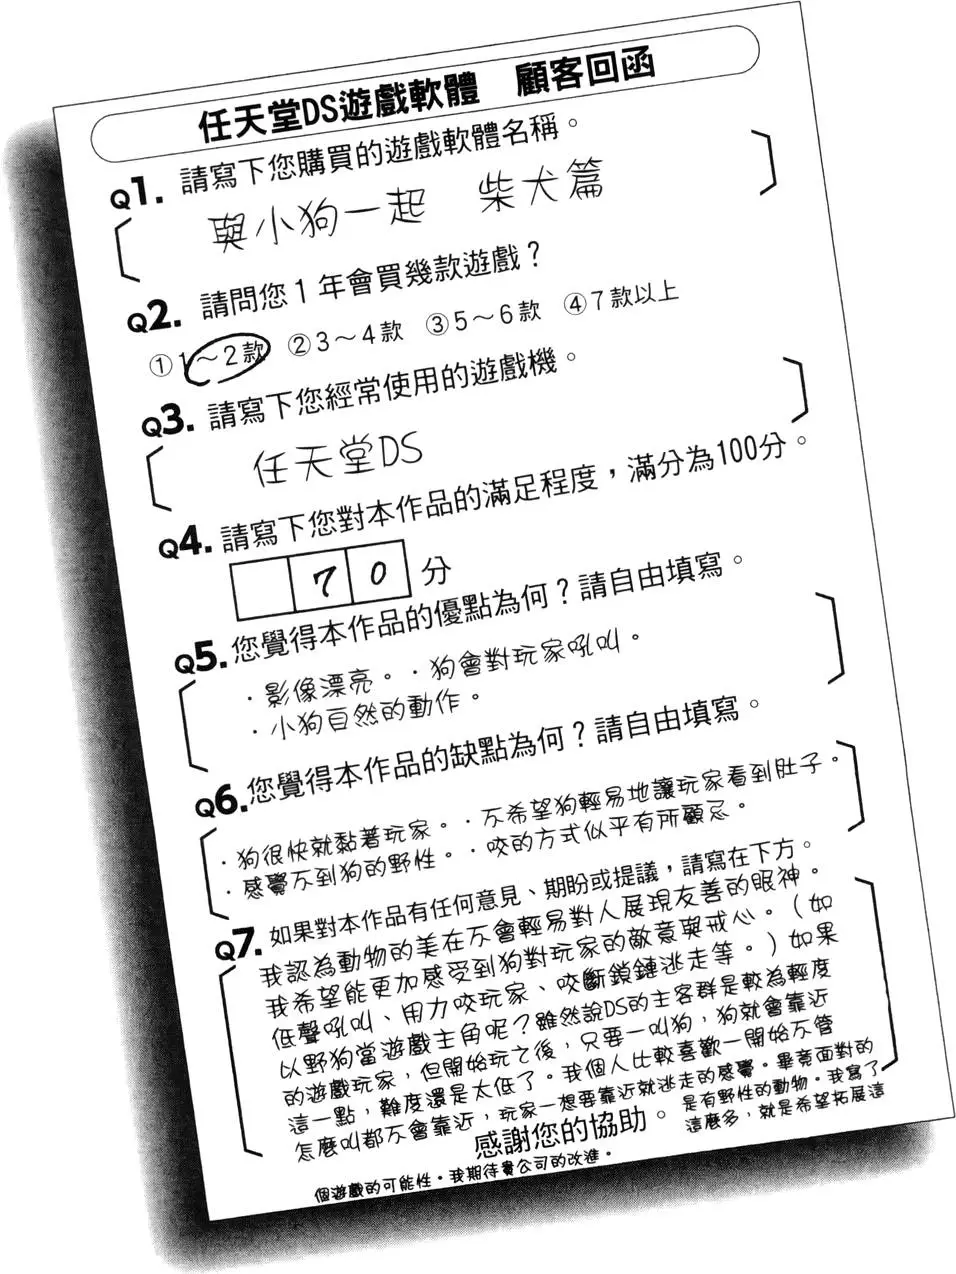 任天堂DS遊戲軟體 顧客回函
Q1. 請寫下您購買的遊戲軟體名稱。
與小狗一起 柴犬篇
Q2. 請問您1年會買幾款遊戲?
①1~2款 ②3~4款 ③5~6款 ④7款以上
Q3. 請寫下您經常使用的遊戲機。
任天堂DS
Q4. 請寫下您對本作品的滿足程度,滿分為100分。
70分
Q5. 您覺得本作品的優點為何?請自由填寫。
·影像漂亮。·狗會對玩家吼叫。
·小狗自然的動作。
Q6. 您覺得本作品的缺點為何?請自由填寫。
·狗很快就黏著玩家。·不希望狗輕易地讓玩家看到肚子。
·感覺不到狗的野性。·咬的方式似乎有所顧忌。
Q7. 如果對本作品有任何意見、期盼或提議,請寫在下方。
我認為動物的美在不會輕易對人展現友善的眼神。
我希望能更加感受到狗對玩家的敵意與戒心。(如
低聲吼叫、用力咬玩家、咬斷鎖鏈逃走等。)如果
以野狗當遊戲主角呢?雖然說DS的主客群是較為輕度
的遊戲玩家,但開始玩之後,只要一叫狗,狗就會靠近
這一點,難度還是太低了。我個人比較喜歡一開始不管
怎麼叫都不會靠近,玩家一想要靠近就逃走的感覺。畢竟面對的
是有野性的動物。我寫了
這麼多,就是希望拓展這
個遊戲的可能性。我期待貴公司的改進。
感謝您的協助。